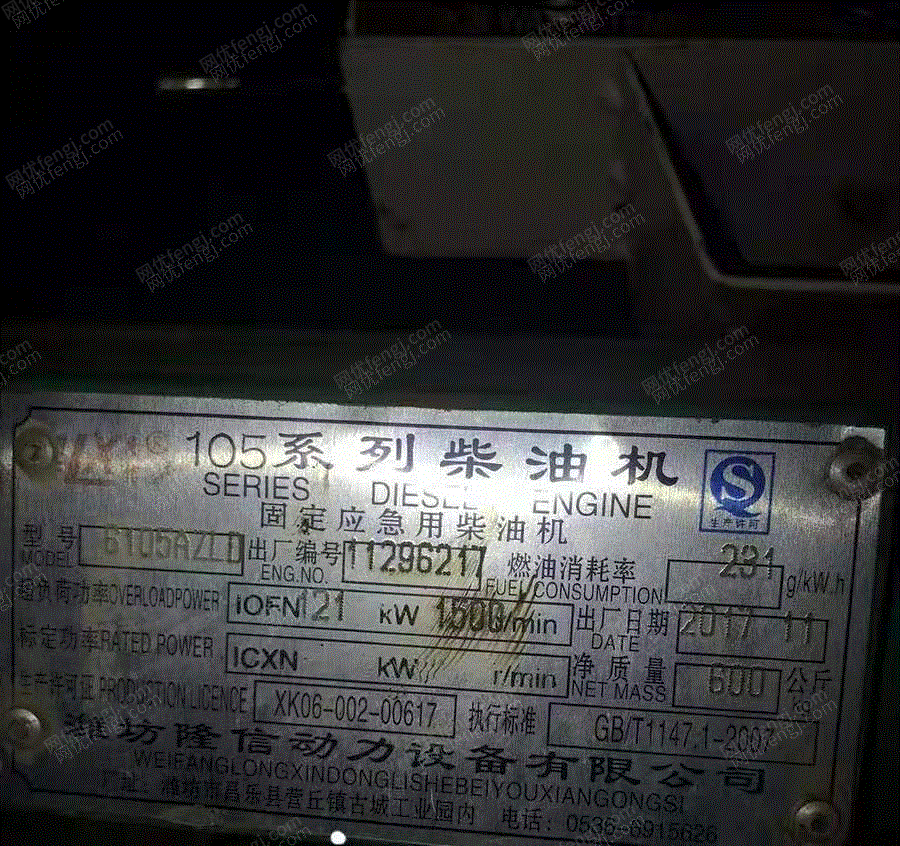 105系列柴油机
SERIES DIESEL ENGINE
固定应急用柴油机
生产许可
型号 MODEL 6105AZLD 出厂编号 ENG.NO. 11296217 燃油消耗率 FUEL CONSUMPTION 231 g/kW.h
超负荷功率 OVERLOADPOWER IOFN 121 kW 1500 r/min 出厂日期 DATE 2017 11
标定功率 RATED POWER ICXN kW r/min 净质量 NET MASS 600 公斤
生产许可证 PRODUCTION LICENCE XK06-002-00617 执行标准 GB/T1147.1-2007
潍坊隆信动力设备有限公司
WEIFANGLONGXINDONGLISHEBEIYOUXIANGONGSI
厂址：潍坊市昌乐县营丘镇古城工业园内 电话：0536-6915626
网优fengj.com